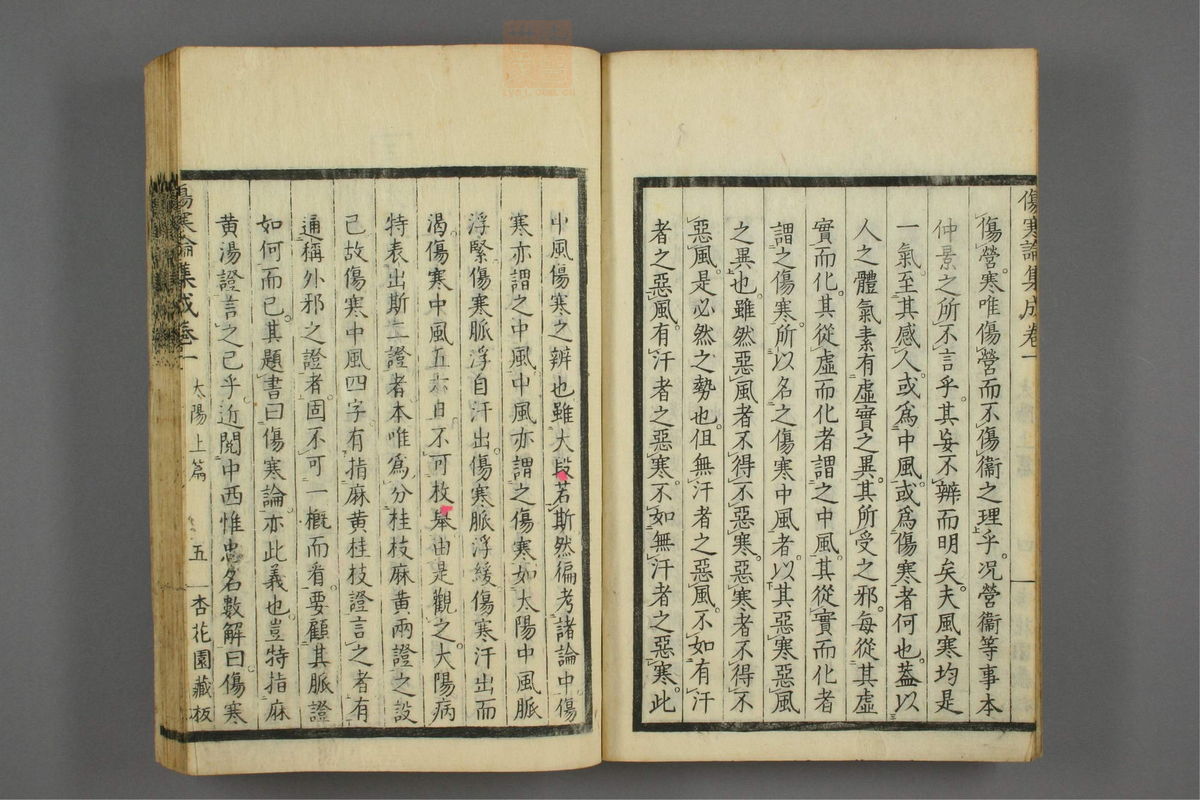 傷寒論集成卷一
傷營寒唯傷營而不傷衞之理乎況營衞等事本
仲景之所不言乎其妄不辨而明矣夫風寒均是
一氣至其感人或爲中風或爲傷寒者何也蓋以
人之體氣素有虛實之異其所受之邪每從其虛
實而化其從虛而化者謂之中風其從實而化者
謂之傷寒所以名之傷寒中風者以其惡寒惡風
之異也雖然惡風者不得不惡寒惡寒者不得不
惡風是必然之勢也但無汗者之惡風不如有汗
者之惡風有汗者之惡寒不如無汗者之惡寒此
中風傷寒之辨也雖大段若斯然徧考諸論中傷
寒亦謂之中風中風亦謂之傷寒如太陽中風脈
浮緊傷寒脈浮自汗出傷寒脈浮緩傷寒汗出而
渴傷寒中風五六日不可枚舉由是觀之太陽病
特表出斯二證者本唯爲分桂枝麻黄兩證之設
已故傷寒中風四字有指麻黄桂枝證言之者有
通稱外邪之證者固不可一概而看要顧其脈證
如何而已其題書曰傷寒論亦此義也豈特指麻
黄湯證言之已乎近閱中西惟忠名數解曰傷寒
傷寒論集成卷一 太陽上篇 五 杏花園藏板